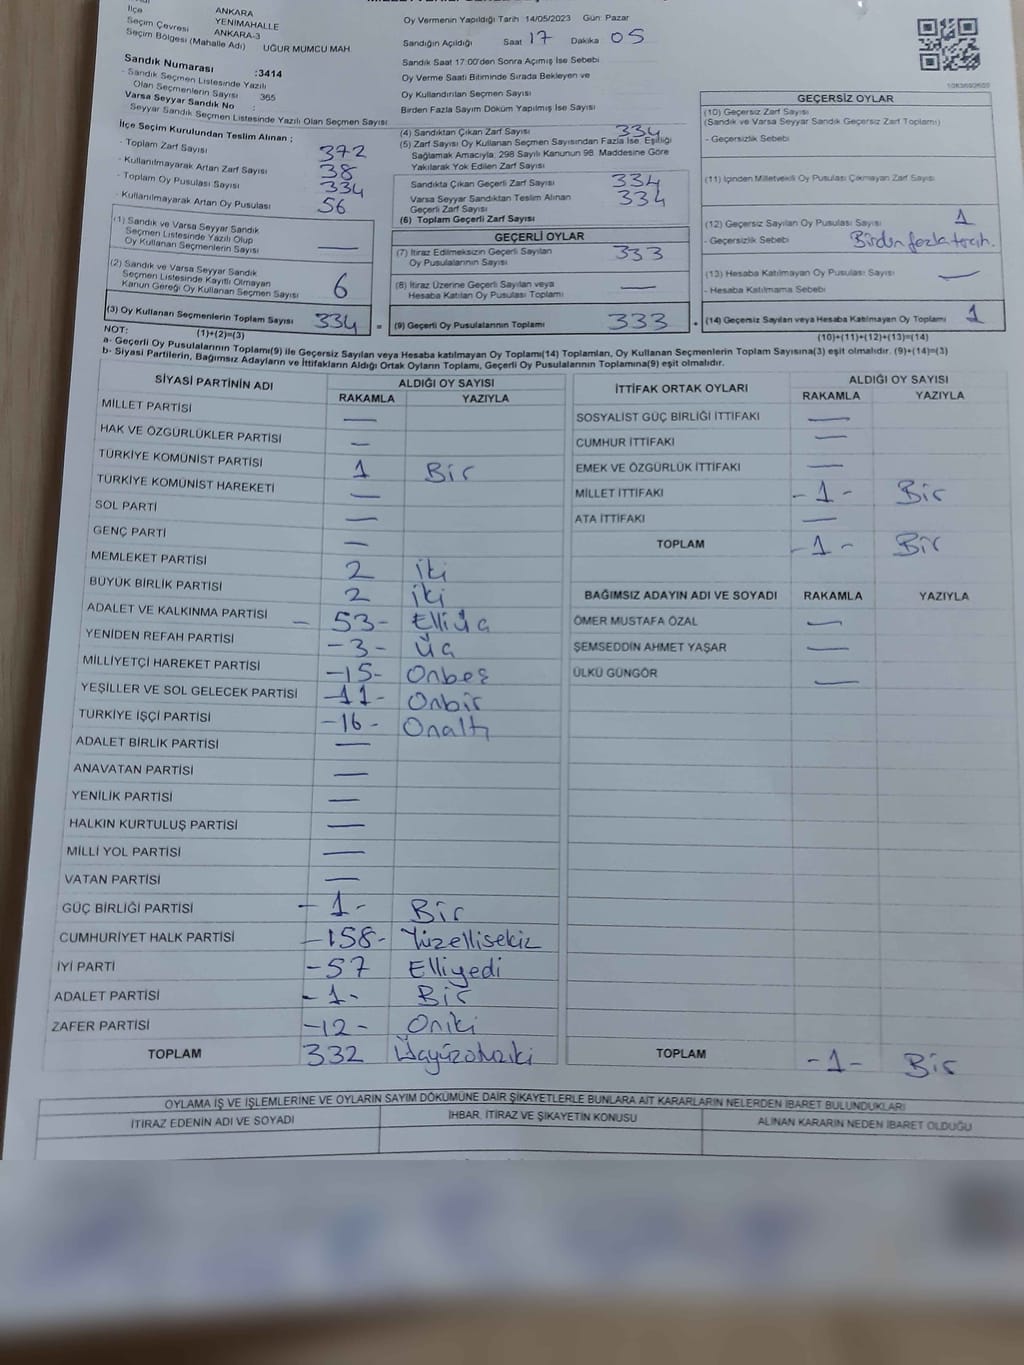 İlçe ANKARA
Seçim Çevresi YENİMAHALLE
Seçim Bölgesi (Mahalle Adı) ANKARA-3
UĞUR MUMCU MAH.
Sandık Numarası :3414
- Sandık Seçmen Listesinde Yazılı
Olan Seçmenlerin Sayısı 365
Varsa Seyyar Sandık No :
Seyyar Sandık Seçmen Listesinde Yazılı Olan Seçmen Sayısı
Oy Vermenin Yapıldığı Tarih 14/05/2023 Gün: Pazar
Sandığın Açıldığı Saat 17 Dakika 05
Sandık Saat 17:00'den Sonra Açımış İse Sebebi
Oy Verme Saati Bitiminde Sırada Bekleyen ve
Oy Kullandırılan Seçmen Sayısı
Birden Fazla Sayım Döküm Yapılmış İse Sayısı
İlçe Seçim Kurulundan Teslim Alınan ;
- Toplam Zarf Sayısı 372
- Kullanılmayarak Artan Zarf Sayısı 38
- Toplam Oy Pusulası Sayısı 334
- Kullanılmayarak Artan Oy Pusulası 56
(1) Sandık ve Varsa Seyyar Sandık
Seçmen Listesinde Yazılı Olup
Oy Kullanan Seçmenlerin Sayısı —
(2) Sandık ve Varsa Seyyar Sandık
Seçmen Listesinde Kayıtlı Olmayan
Kanun Gereği Oy Kullanan Seçmen Sayısı 6
(3) Oy Kullanan Seçmenlerin Toplam Sayısı 334
(1)+(2)=(3)
(4) Sandıktan Çıkan Zarf Sayısı 334
(5) Zarf Sayısı Oy Kullanan Seçmen Sayısından Fazla İse, Eşitliği
Sağlamak Amacıyla, 298 Sayılı Kanunun 98. Maddesine Göre
Yakılarak Yok Edilen Zarf Sayısı
Sandıkta Çıkan Geçerli Zarf Sayısı 334
Varsa Seyyar Sandıktan Teslim Alınan
Geçerli Zarf Sayısı 334
(6) Toplam Geçerli Zarf Sayısı
GEÇERLİ OYLAR
(7) İtiraz Edilmeksizin Geçerli Sayılan
Oy Pusulalarının Sayısı 333
(8) İtiraz Üzerine Geçerli Sayılan veya
Hesaba Katılan Oy Pusulası Toplamı —
= (9) Geçerli Oy Pusulalarının Toplamı 333
GEÇERSİZ OYLAR
(10) Geçersiz Zarf Sayısı
(Sandık ve Varsa Seyyar Sandık Geçersiz Zarf Toplamı)
- Geçersizlik Sebebi
(11) İçinden Milletvekili Oy Pusulası Çıkmayan Zarf Sayısı
(12) Geçersiz Sayılan Oy Pusulası Sayısı 1
- Geçersizlik Sebebi Birden fazla tercih.
(13) Hesaba Katılmayan Oy Pusulası Sayısı —
- Hesaba Katılmama Sebebi
(14) Geçersiz Sayılan veya Hesaba Katılmayan Oy Toplamı 1
(10)+(11)+(12)+(13)=(14)
NOT:
a- Geçerli Oy Pusulalarının Toplamı(9) ile Geçersiz Sayılan veya Hesaba katılmayan Oy Toplamı(14) Toplamları, Oy Kullanan Seçmenlerin Toplam Sayısına(3) eşit olmalıdır. (9)+(14)=(3)
b- Siyasi Partilerin, Bağımsız Adayların ve İttifakların Aldığı Ortak Oyların Toplamı, Geçerli Oy Pusulalarının Toplamına(9) eşit olmalıdır.
SİYASİ PARTİNİN ADI ALDIĞI OY SAYISI
RAKAMLA YAZIYLA
MİLLET PARTİSİ —
HAK VE ÖZGÜRLÜKLER PARTİSİ —
TÜRKİYE KOMÜNİST PARTİSİ 1 Bir
TÜRKİYE KOMÜNİST HAREKETİ —
SOL PARTİ —
GENÇ PARTİ —
MEMLEKET PARTİSİ 2 iki
BÜYÜK BİRLİK PARTİSİ 2 iki
ADALET VE KALKINMA PARTİSİ - 53- Elliüç
YENİDEN REFAH PARTİSİ -3- üç
MİLLİYETÇİ HAREKET PARTİSİ -15- Onbeş
YEŞİLLER VE SOL GELECEK PARTİSİ -11- Onbir
TÜRKİYE İŞÇİ PARTİSİ -16- Onaltı
ADALET BİRLİK PARTİSİ —
ANAVATAN PARTİSİ —
YENİLİK PARTİSİ —
HALKIN KURTULUŞ PARTİSİ —
MİLLİ YOL PARTİSİ —
VATAN PARTİSİ —
GÜÇ BİRLİĞİ PARTİSİ -1- Bir
CUMHURİYET HALK PARTİSİ -158- Yüzellisekiz
İYİ PARTİ -57 Elliyedi
ADALET PARTİSİ -1- Bir
ZAFER PARTİSİ -12- Oniki
TOPLAM 332 Üçyüzotuziki
İTTİFAK ORTAK OYLARI ALDIĞI OY SAYISI
RAKAMLA YAZIYLA
SOSYALİST GÜÇ BİRLİĞİ İTTİFAKI —
CUMHUR İTTİFAKI —
EMEK VE ÖZGÜRLÜK İTTİFAKI —
MİLLET İTTİFAKI -1- Bir
ATA İTTİFAKI —
TOPLAM -1- Bir
BAĞIMSIZ ADAYIN ADI VE SOYADI RAKAMLA YAZIYLA
ÖMER MUSTAFA ÖZAL —
ŞEMSEDDİN AHMET YAŞAR —
ÜLKÜ GÜNGÖR —
TOPLAM -1- Bir
OYLAMA İŞ VE İŞLEMLERİNE VE OYLARIN SAYIM DÖKÜMÜNE DAİR ŞİKAYETLERLE BUNLARA AİT KARARLARIN NELERDEN İBARET BULUNDUKLARI
İTİRAZ EDENİN ADI VE SOYADI İHBAR, İTİRAZ VE ŞİKAYETİN KONUSU ALINAN KARARIN NEDEN İBARET OLDUĞU